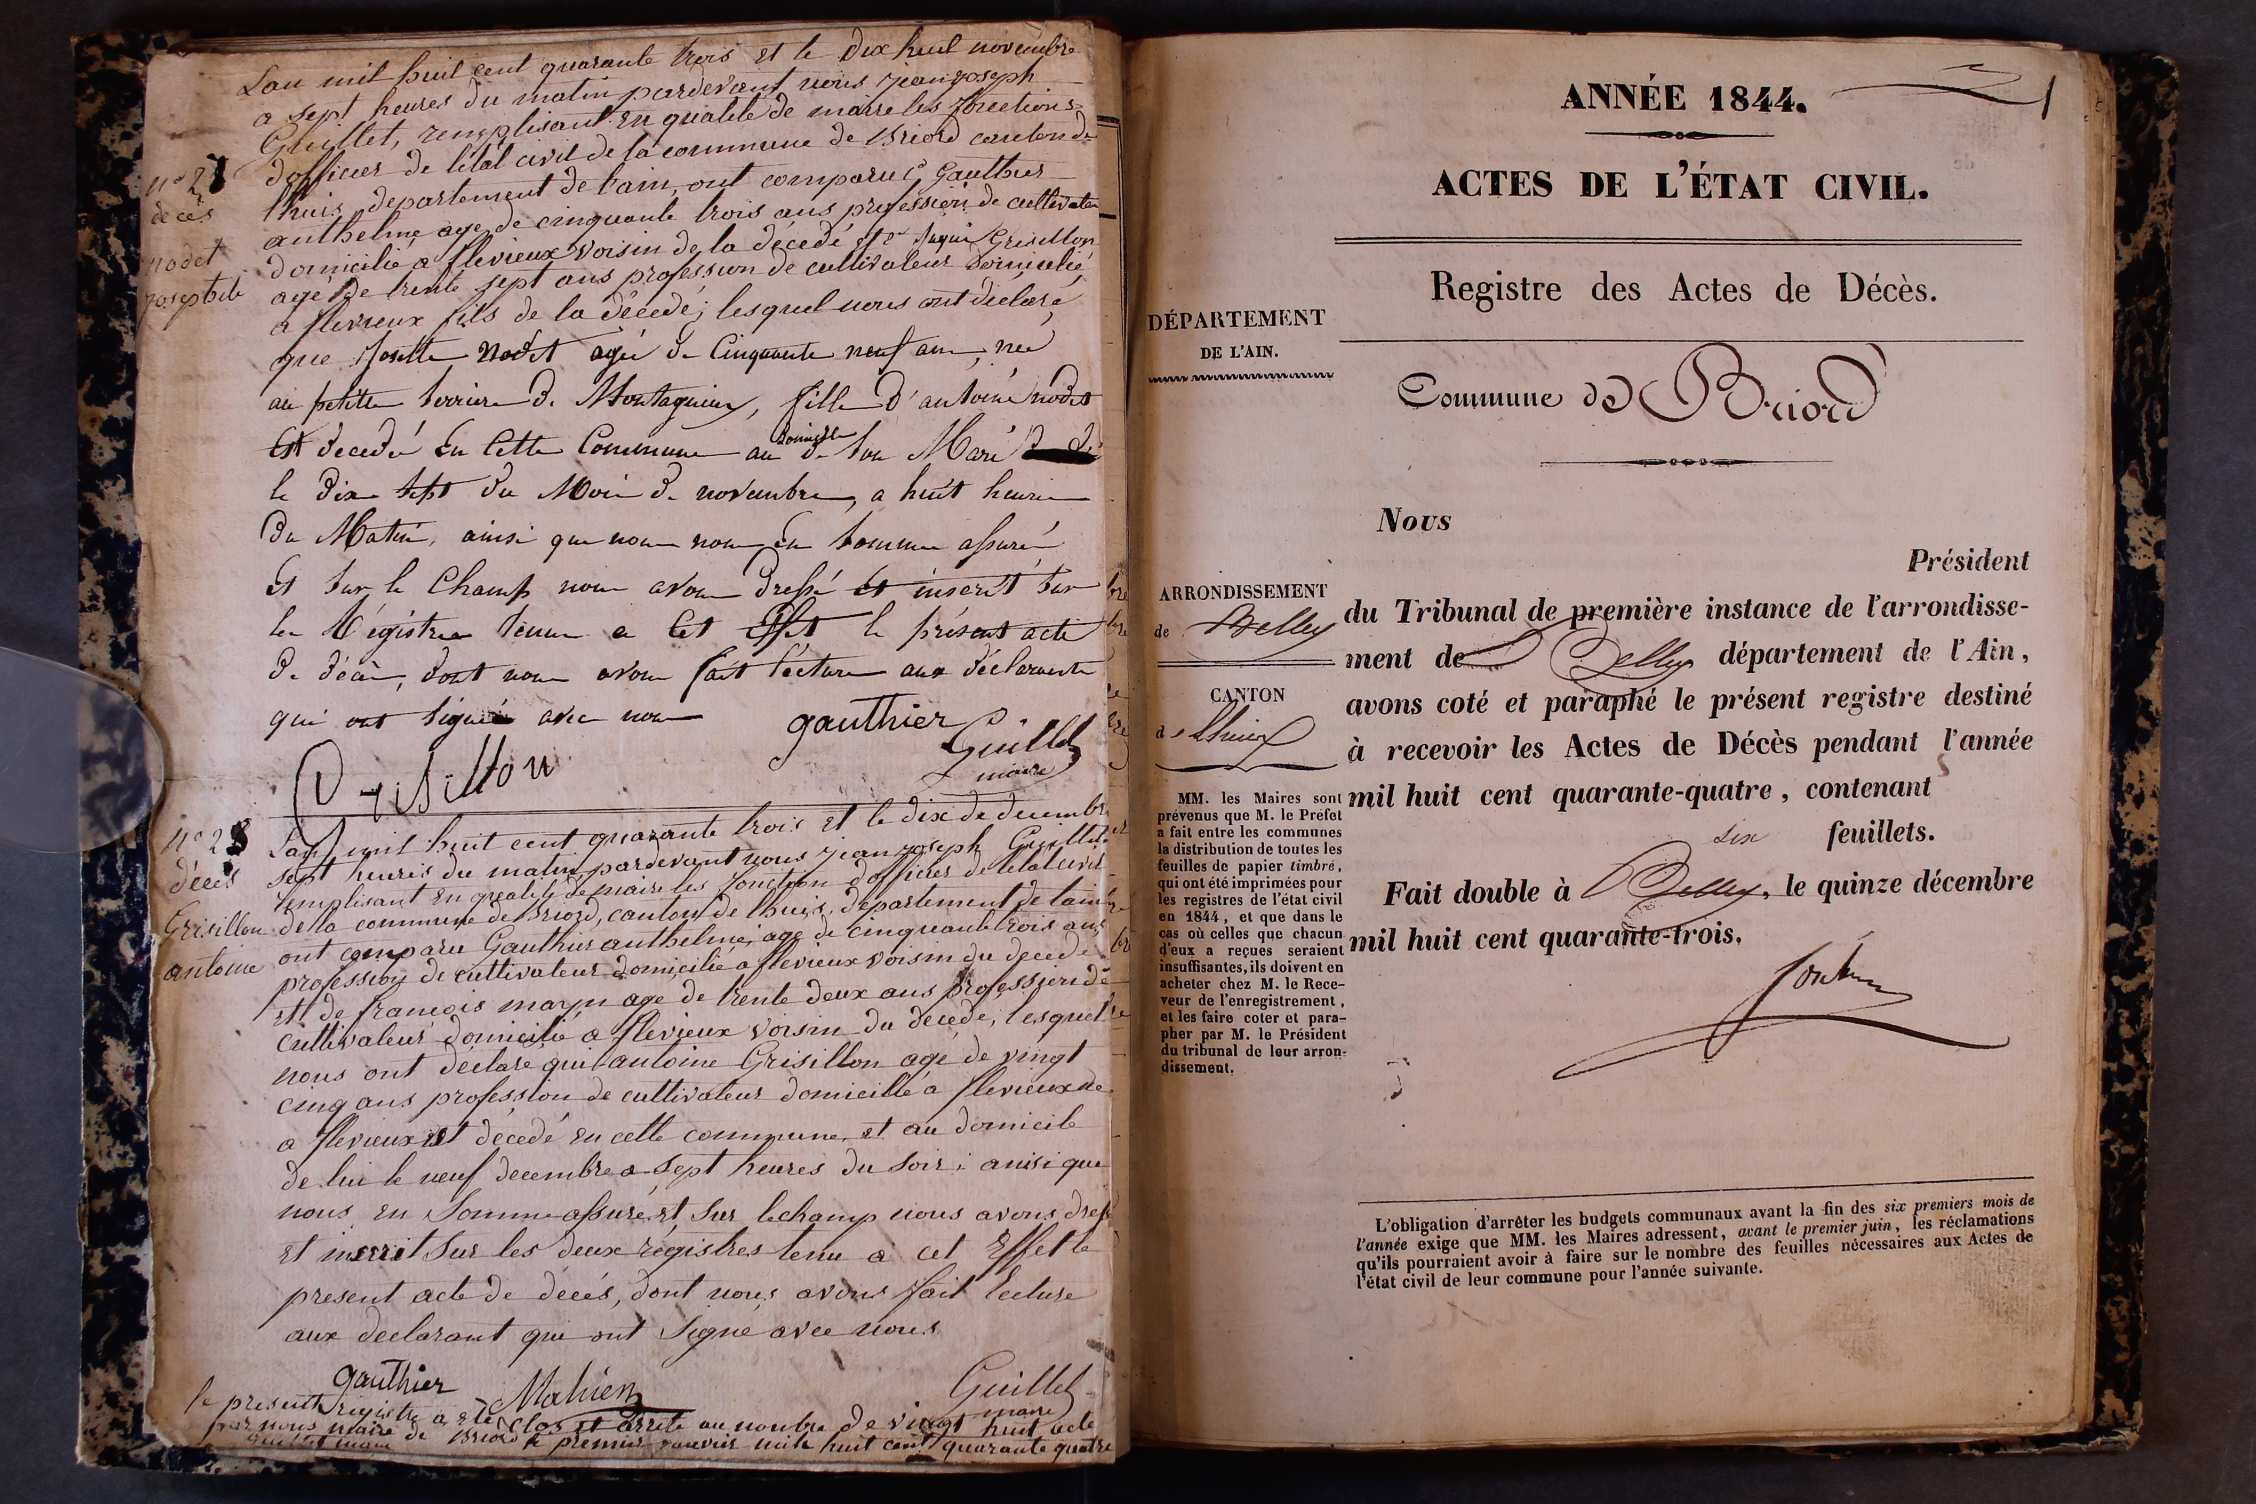 Lan mil huit cent quarante trois et le dix huit novembre
a sept heures du matin pardevant nous jean joseph
Guillet, remplisant en qualité de maire les fonctions
dofficier de letat civil de la commune de Briord canton de
lhuis, departement de lain, ont comparu 1° Gauthier
anthelme age de cinquante trois ans profession de cultivateur
domicilié a flevieux voisin de la décedé et 2° Grisillon
agé de trente sept ans profession de cultivateur domicilié
a flevieux fils de la décedé; lesquel nous ont declaré,
que Josette Nodet agée de Cinquante neuf ans, née
au petite terriere de Montagnieu, fille d'antoine nodet
Est decedé en Cette Commune au domicile de son Mari
le dix sept du Mois de novembre, a huit heures
du Matin, ainsi que nous nous en somme assuré
Et sur le Champ nous avons dressé et inscrit sur
les Régistres tenue a Cet Effet le présent acte
de décès, dont nous avons fait lecture aux déclarants
qui ont signé avec nous
gauthier
Guillet
maire
Grisillon
n° 27
decès
nodet
josephte
n° 28
décès
Grisillon
antoine
Lan mil huit cent quarante trois et le dix de decembre
sept heures du matin pardevant nous jean joseph Guillet
remplisant en qualité de maire les fonction dofficier de letat civil
de la commune de Briord, canton de lhuis, departement de lain
ont comparu Gauthier anthelme, age de cinquante trois ans
profession de cultivateur domicilié a flevieux voisin du decedé
et de francois marin age de trente deux ans profession de
cultivateur domicilié a flevieux voisin du décedé, lesquel
nous ont déclaré qui antoine Grisillon agé de vingt
cinq ans profession de cultivateur domicillé a flevieux né
a flevieux est décedé en cette commune, et au domicile
de lui le neuf decembre a sept heures du soir; ainsi que
nous en somme assuré, et sur lechamp nous avons dressé
et inscrit sur les deux régistres tenu a cet Effet le
present acte de décés, dont nous avons fait lecture
aux declarant qui ont signe avec nous
gauthier
Mahien
Guillet
maire
le present registre a ete clos et arreté au nombre de vingt huit acte
par nous maire de Briord le premier janvier mil huit cent quarante quatre
1
ANNÉE 1844.
ACTES DE L'ÉTAT CIVIL.
Registre des Actes de Décès.
Commune de Briord
DÉPARTEMENT
DE L'AIN.
ARRONDISSEMENT
de Belley
CANTON
de Lhuis
MM. les Maires sont
prévenus que M. le Préfet
a fait entre les communes
la distribution de toutes les
feuilles de papier timbré,
qui ont été imprimées pour
les registres de l'état civil
en 1844, et que dans le
cas où celles que chacun
d'eux a reçues seraient
insuffisantes, ils doivent en
acheter chez M. le Rece-
veur de l'enregistrement,
et les faire coter et para-
pher par M. le Président
du tribunal de leur arron-
dissement.
Nous
Président
du Tribunal de première instance de l'arrondisse-
ment de Belley département de l'Ain,
avons coté et paraphé le présent registre destiné
à recevoir les Actes de Décès pendant l'année
mil huit cent quarante-quatre, contenant
six feuillets.
Fait double à Belley, le quinze décembre
mil huit cent quarante-trois.
L'obligation d'arrêter les budgets communaux avant la fin des six premiers mois de
l'année exige que MM. les Maires adressent, avant le premier juin, les réclamations
qu'ils pourraient avoir à faire sur le nombre des feuilles nécessaires aux Actes de
l'état civil de leur commune pour l'année suivante.